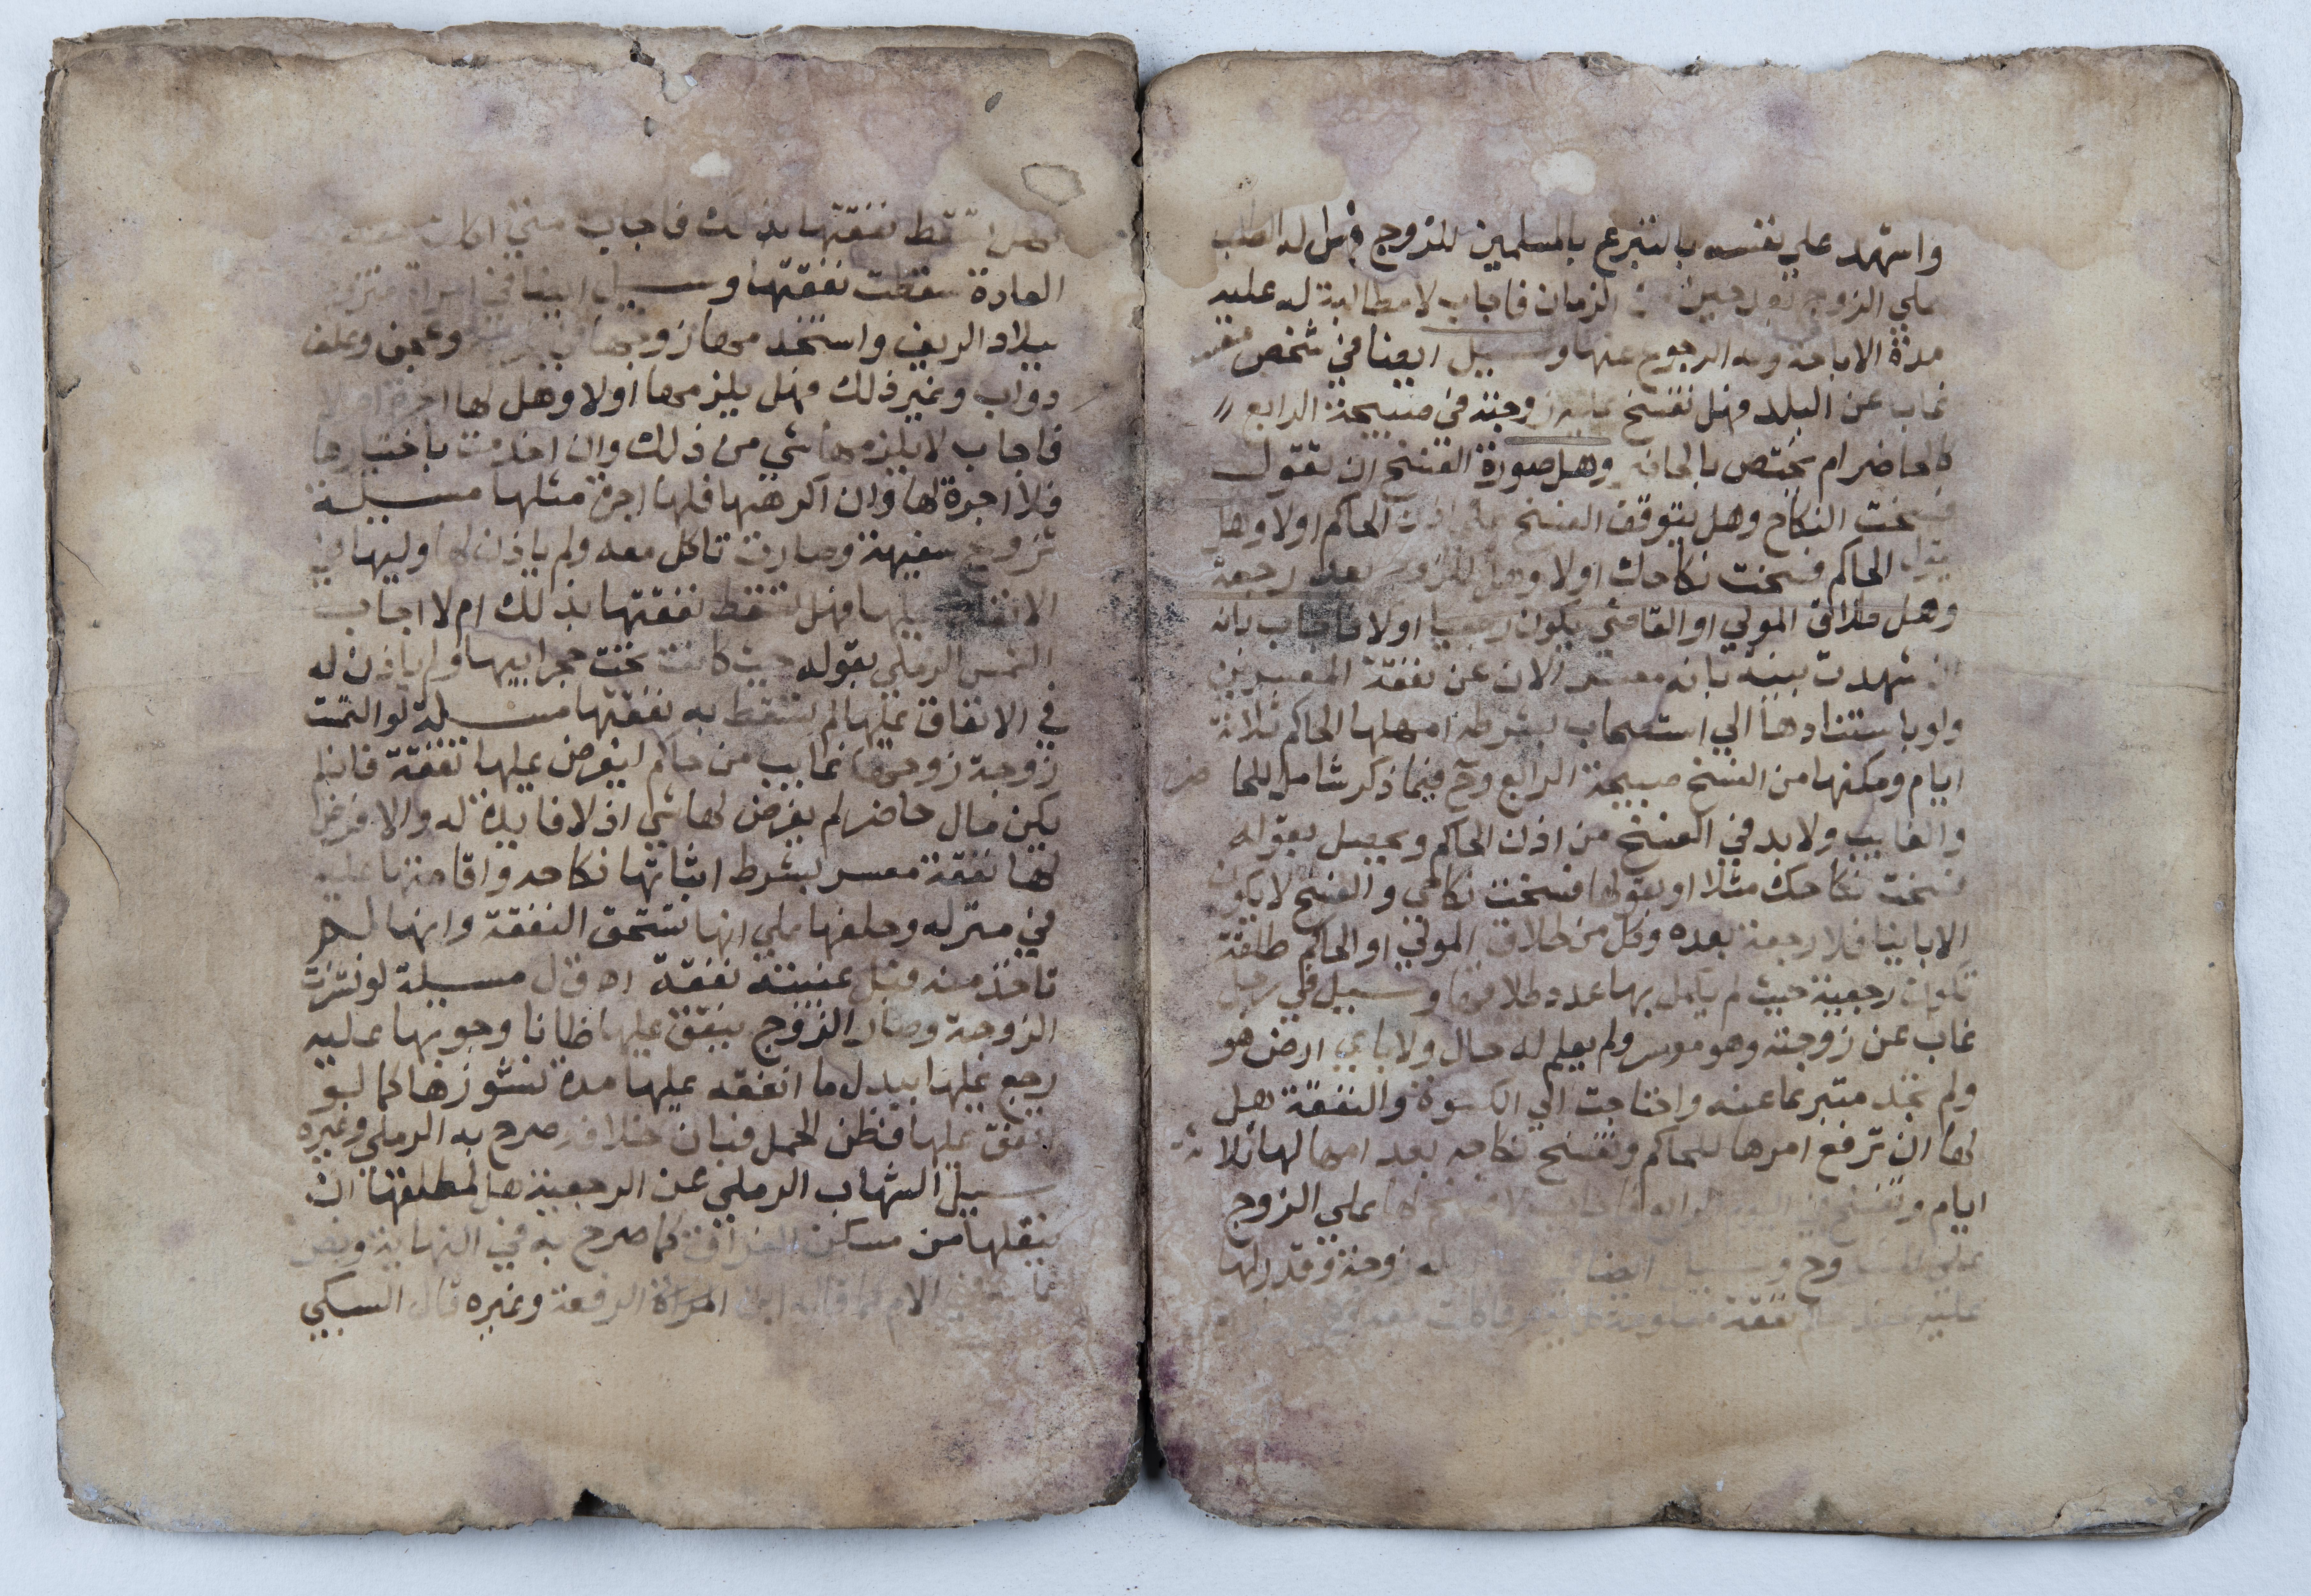 واشهد علي نفسه بالتبرع بالمسلمين للزوج فهل له الطلب
علي الزوج الزمان فاجاب لا مطالبة له عليه
مدة الاباحة وله الرجوع عنها وسيل ايضا في شخص
غاب عن البلد فهل تفسخ عليه زوجته في صبيحة الرابع
كالحاضر ام يختص بالحاضر وهل صورة الفسخ ان تقول
فسخت النكاح وهل يتوقف الفسخ علي اذن الحاكم اولا وهل
يقول الحاكم فسخت نكاحك اولا وهل للزوج بعد رجعة
وهل طلاق المولي او القاضي يكون رجعيا اولا فاجاب بانه
ان شهدت بينة بانه معسر الان عن نفقة المعسرين
ولو باستنادها الي استصحاب بشرطه امهلها الحاكم ثلاثة
ايام ومكنها من الفسخ صبيحة الرابع وح فيما ذكر شامل للحا ضر
والغايب ولا بد في الفسخ من اذن الحاكم ويحصل بقوله
فسخت نكاحك مثلا او بقولها فسخت نكاحي والفسخ لا يكون
الا باينا فلا رجعة بعده وكل من طلاق المولي او الحاكم طلقة
تكون رجعية حيث لم يكمل بها عدد طلاقها وسيل في رجل
غاب عن زوجته وهو موسر ولم يعلم له حال ولا باي ارض هو
ولم تجد متبرعا عنه واحتاجت الي الكسوة والنفقة هل
لها ان ترفع امرها للحاكم وتفسخ نكاحه بعد امهالها ثلا ثة
ايام وتفسخ في اليوم الرابع فاجاب لا فسخ لها علي الزوج
وح وسيل ايضا له زوجة وقدر لها
عليه نفقة معلومة
هل تسقط نفقتها بذلك فاجاب متي اكلت معه
العادة سقطت نفقتها وسيل ايضا في امراة
ببلاد الريف واستخدمها زوجها في وعجن وعلف
دواب وغير ذلك فهل يلزمها اولا وهل لها اجرة ام لا
فاجاب لا يلزمها شي من ذلك وان اخدمت باختيارها
فلا اجرة لها وان اكرهها فلها اجرة مثلها مسيلة
تزوج سفيهة وصارت تاكل معه ولم ياذن لها وليها في
الانفاق عليها فهل تسقط نفقتها بذلك ام لا اجاب
الشمس الرملي بقوله حيث كانت تحت حجر ابيها ولم ياذن له
في الانفاق عليها لم تسقط به نفقتها مسيلة لو التمست
زوجة زوجها غايب من حاكم ان يفرض عليها نفقة فان لم
يكن مال حاضر لم يفرض لها شي اذ لا فايدة له والا فرض
لها نفقة معسر بشرط اثباتها نكاحه واقامتها عليه
في منزله وحلفها علي انها تستحق النفقة وانها لم
تاخذ منه قبل غيبته نفقة اه قال مسيلة لو نشزت
الزوجة وصار الزوج ينفق عليها ظانا وجوبها عليه
رجع عليها ببدل ما انفقه عليها مدة نشوزها كما لو
انفق عليها فظن الحمل فبان خلافه صرح به الرملي وغيره
سيل الشهاب الرملي عن الرجعية هل لمطلقها ان
ينقلها من مسكن الفراق كما صرح به في النهاية ونص
عليه في الام كما قاله ابن الرفعة وغيره قال السبكي